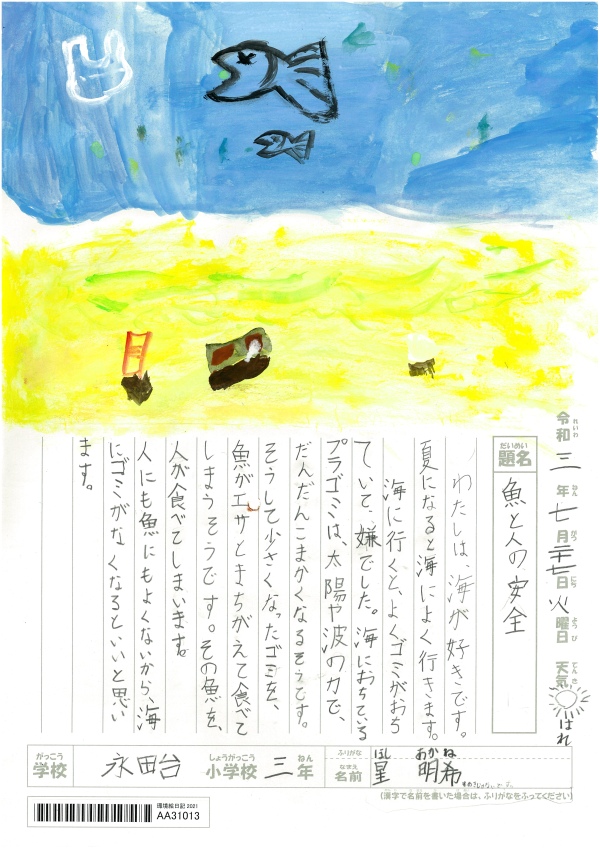 令和三年七月二十七日火曜日 天気 はれ
れいわ ねん がつ にち ようび てんき
だいめい
題名
魚と人の安全
わたしは、海が好きです。
夏になると海によく行きます。
海に行くと、よくゴミがおち
ていて、嫌でした。海におちている
プラゴミは、太陽や波の力で、
だんだんこまかくなるそうです。
そうして小さくなったゴミを、
魚がエサとまちがえて食べて
しまうそうです。その魚を、
人が食べてしまいます。
人にも魚にもよくないから、海
にゴミがなくなるといいと思い
ます。
がっこう しょうがっこう ねん
学校 永田台 小学校 三年
ふりがな ほし あかね
なまえ
名前 星 明希
(漢字で名前を書いた場合は、ふりがなをふってください)
環境絵日記 2021
AA31013